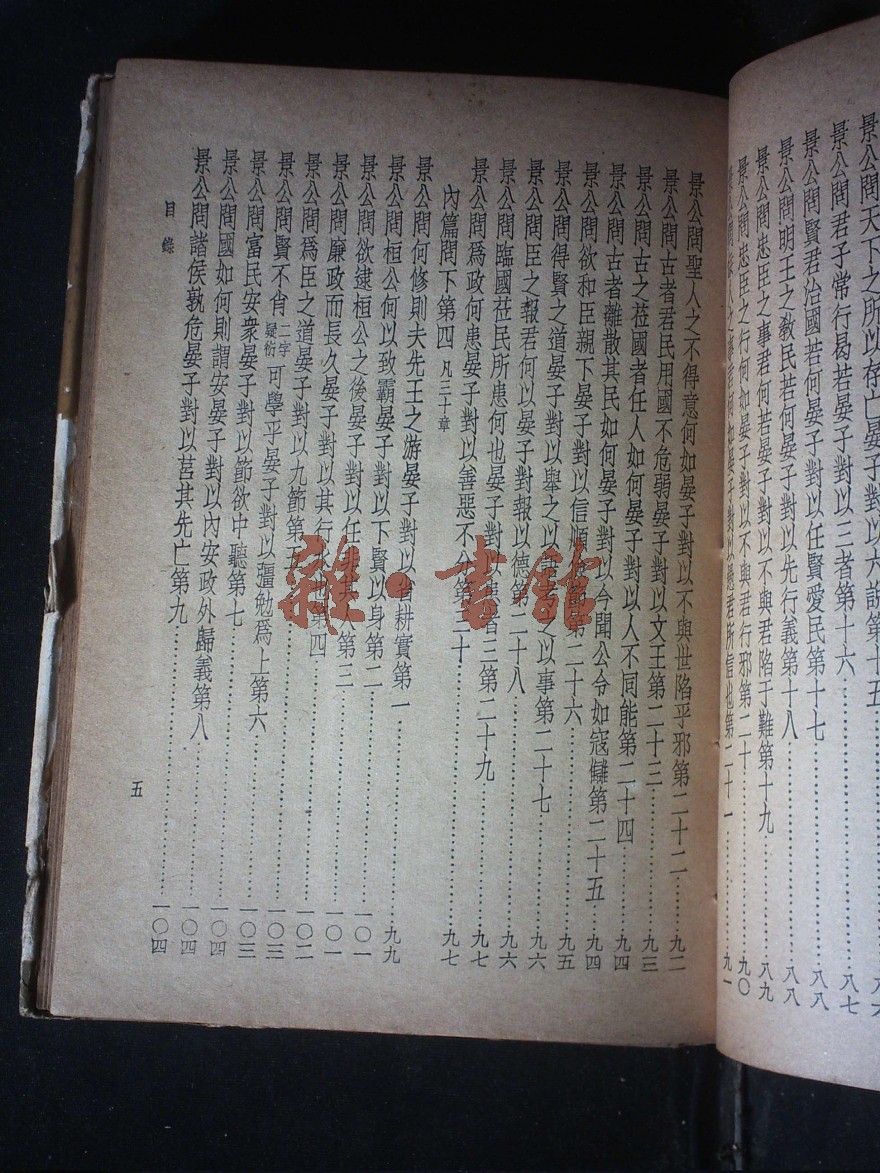 景公問天下之所以存亡晏子對以六說第十五……八六
景公問君子常行曷若晏子對以三者第十六……八七
景公問賢君治國若何晏子對以任賢愛民第十七……八八
景公問明王之敎民若何晏子對以先行義第十八……八八
景公問忠臣之事君何若晏子對以不與君陷于難第十九……八九
景公問忠臣之行何如晏子對以不與君行邪第二十……九〇
之事君何如晏子對以愚君所信也第二十一……九一
景公問聖人之不得意何如晏子對以不與世陷乎邪第二十二……九二
景公問古者君民用國不危弱晏子對以文王第二十三……九三
景公問古之莅國者任人如何晏子對以人不同能第二十四……九四
景公問古者離散其民如何晏子對以今聞公令如寇讎第二十五……九四
景公問欲和臣親下晏子對以信順儉節第二十六……九五
景公問得賢之道晏子對以舉之以語考之以事第二十七……九六
景公問臣之報君何以晏子對報以德第二十八……九六
景公問臨國莅民所患何也晏子對以患者三第二十九……九七
景公問爲政何患晏子對以善惡不分第三十……九七
內篇問下第四 凡三十章
景公問何修則夫先王之游晏子對以省耕實第一……九九
景公問桓公何以致霸晏子對以下賢以身第二……一〇一
景公問欲逮桓公之後晏子對以任 第三……一〇一
景公問廉政而長久晏子對以其行水也第四……一〇二
景公問爲臣之道晏子對以九節第五……一〇三
景公問賢不肖 二字疑衍 可學乎晏子對以彊勉爲上第六……一〇三
景公問富民安衆晏子對以節欲中聽第七……一〇四
景公問國如何則謂安晏子對以內安政外歸義第八……一〇四
景公問諸侯孰危晏子對以莒其先亡第九……一〇四
目錄
五
雜·書館